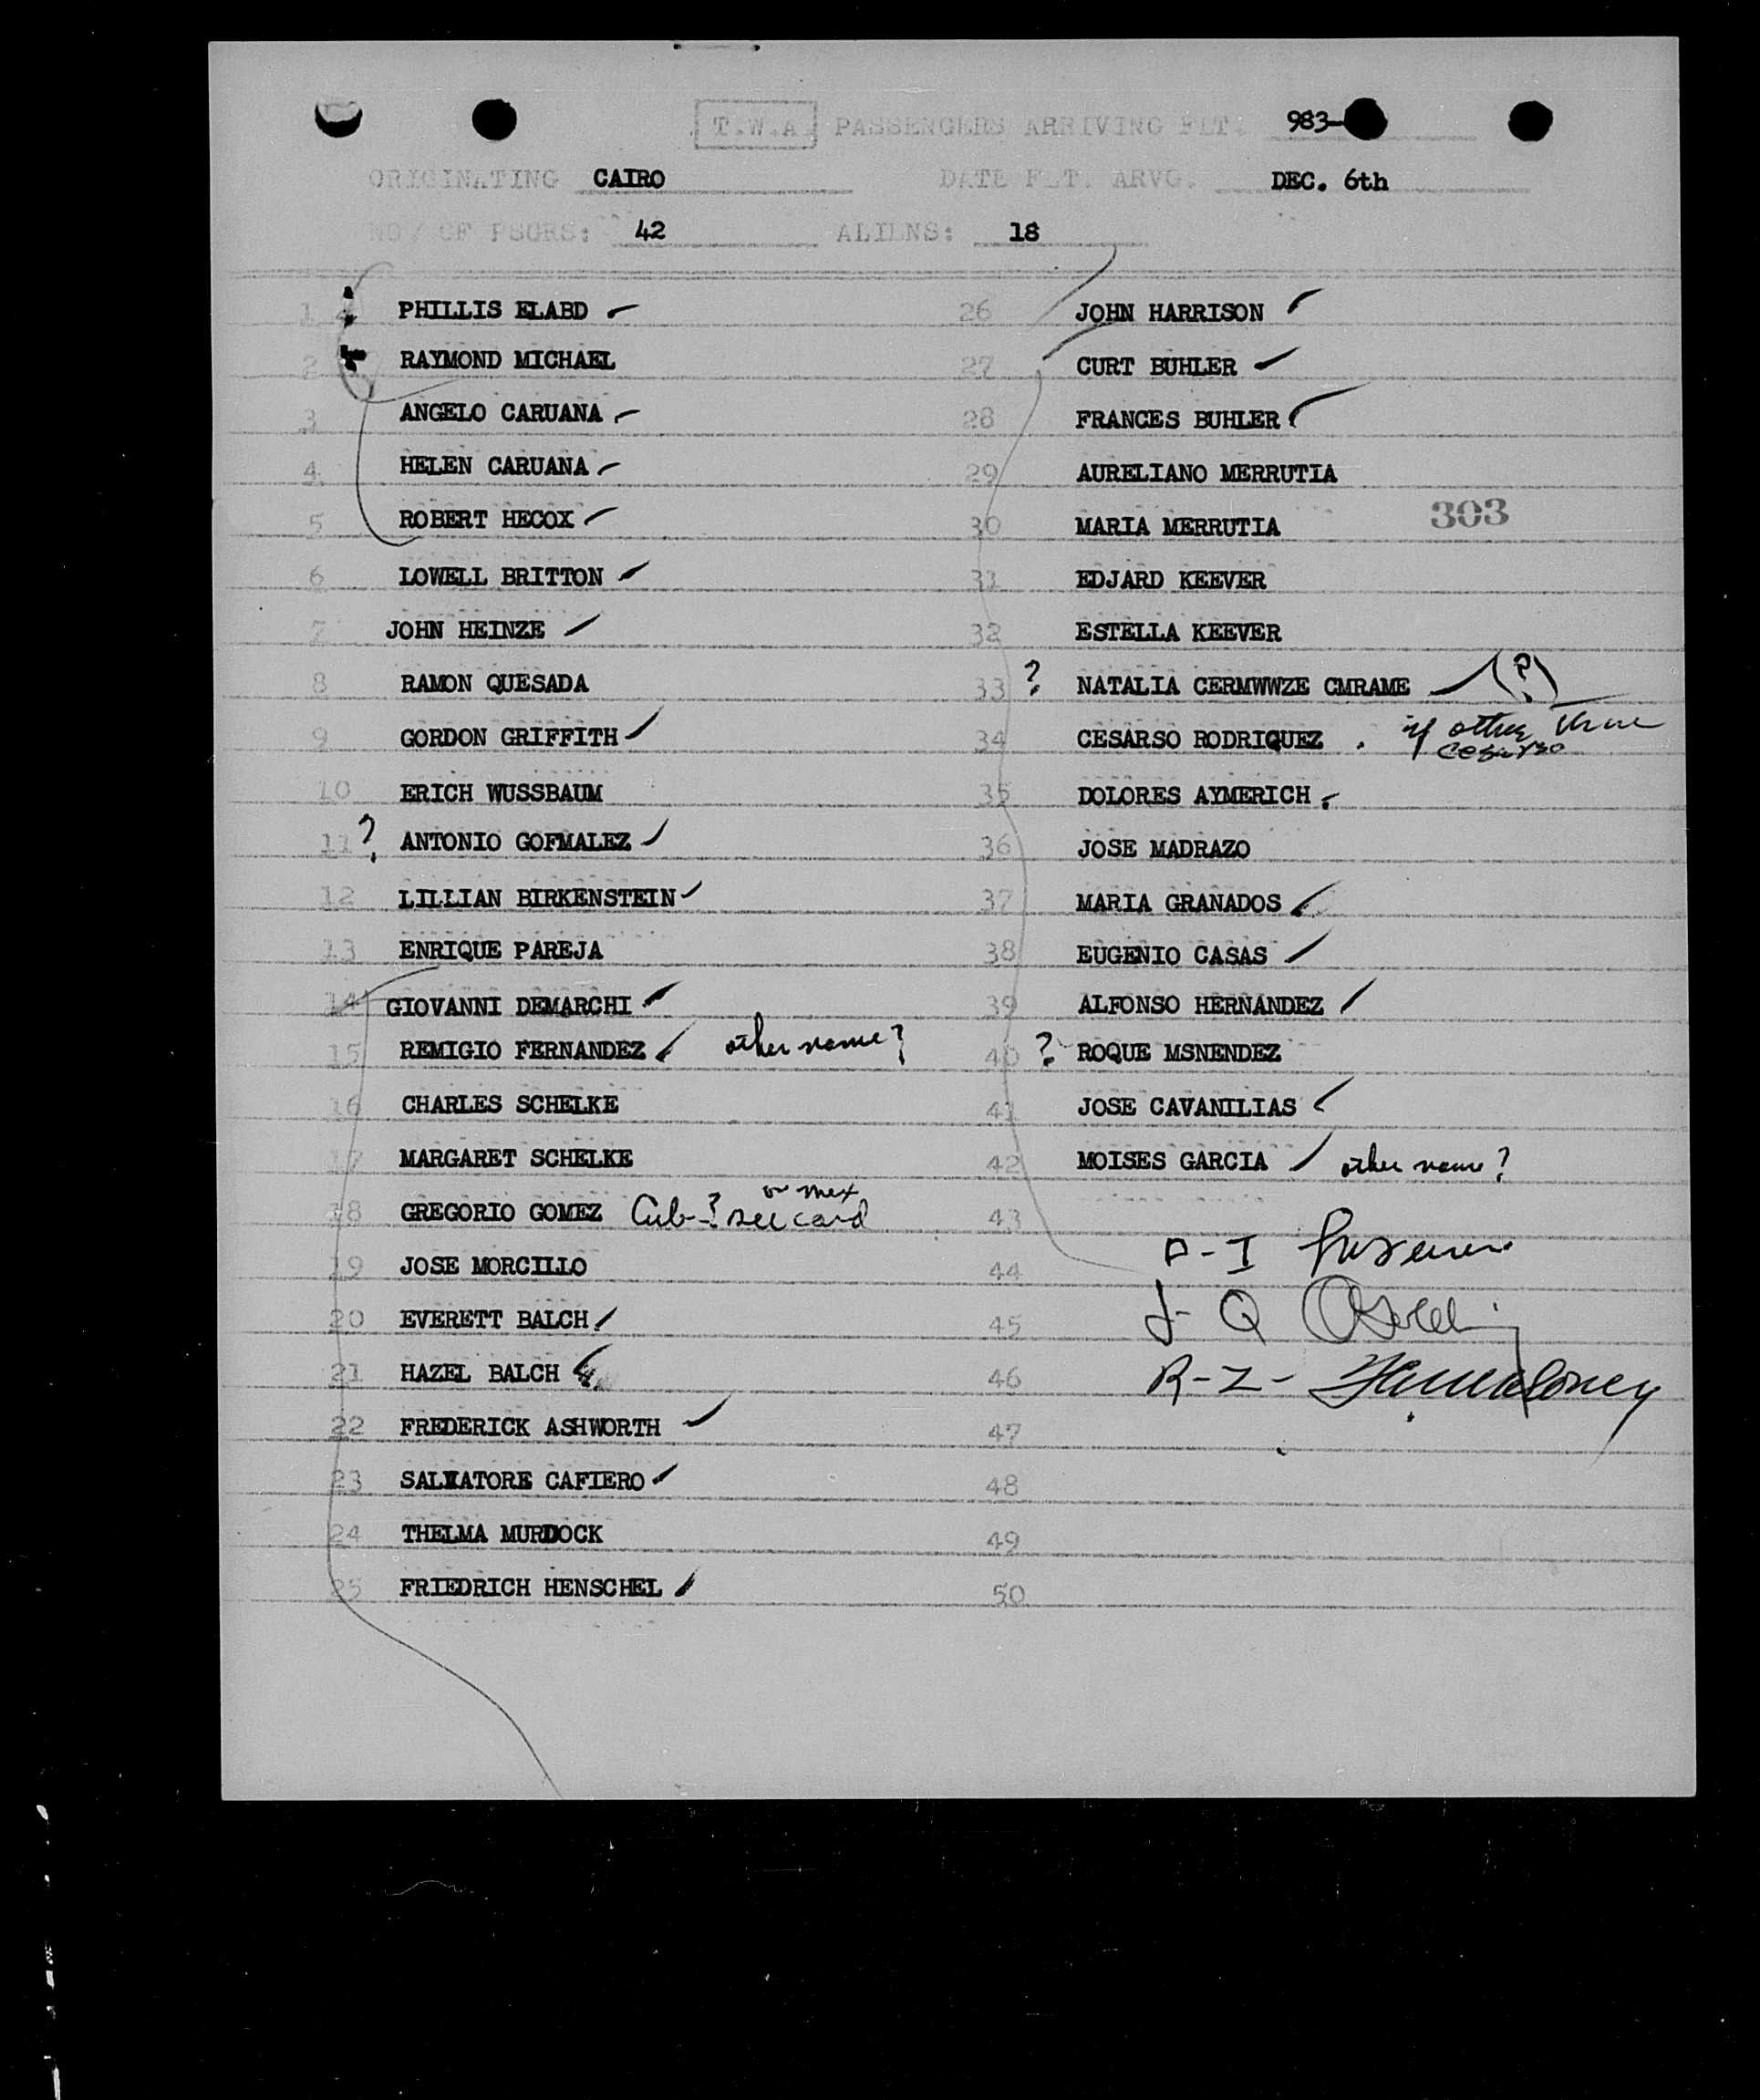 T.W.A. PASSENGERS ARRIVING FLT. 983-
ORIGINATING CAIRO DATE FLT. ARVG. DEC. 6th
NO. OF PSGRS: 42 ALIENS: 18
1 PHILLIS ELABD
2 RAYMOND MICHAEL
3 ANGELO CARUANA
4 HELEN CARUANA
5 ROBERT HECOX
6 LOWELL BRITTON
7 JOHN HEINZE
8 RAMON QUESADA
9 GORDON GRIFFITH
10 ERICH WUSSBAUM
11 ? ANTONIO GOFMALEZ
12 LILLIAN BIRKENSTEIN
13 ENRIQUE PAREJA
14 GIOVANNI DEMARCHI
15 REMIGIO FERNANDEZ other name?
16 CHARLES SCHELKE
17 MARGARET SCHELKE
18 GREGORIO GOMEZ Cub-? or mex see card
19 JOSE MORCILLO
20 EVERETT BALCH
21 HAZEL BALCH
22 FREDERICK ASHWORTH
23 SALVATORE CAFIERO
24 THELMA MURDOCK
25 FRIEDRICH HENSCHEL
26 JOHN HARRISON
27 CURT BUHLER
28 FRANCES BUHLER
29 AURELIANO MERRUTIA
30 MARIA MERRUTIA 303
31 EDJARD KEEVER
32 ESTELLA KEEVER
33 ? NATALIA CERMWWZE CMRAME (?)
34 CESARSO RODRIQUEZ . if other than Cesarso
35 DOLORES AYMERICH
36 JOSE MADRAZO
37 MARIA GRANADOS
38 EUGENIO CASAS
39 ALFONSO HERNANDEZ
40 ? ROQUE MSNENDEZ
41 JOSE CAVANILIAS
42 MOISES GARCIA other name?
43
44 P-I
45 J-Q
46 R-Z-
47
48
49
50